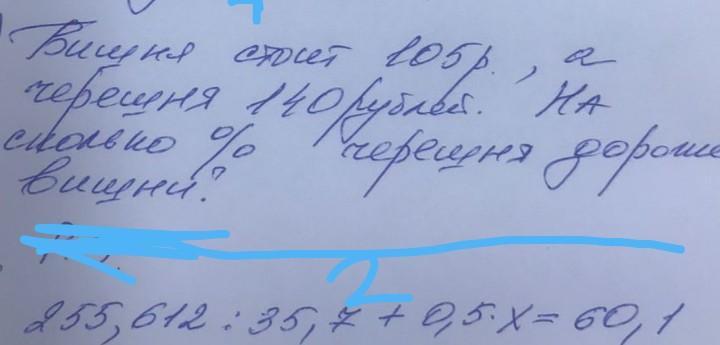 Вишня стоит 105р., а
черешня 140 рублей. На
сколько % черешня дороже
вишни?
2
255,612 : 35,7 + 0,5·x = 60,1